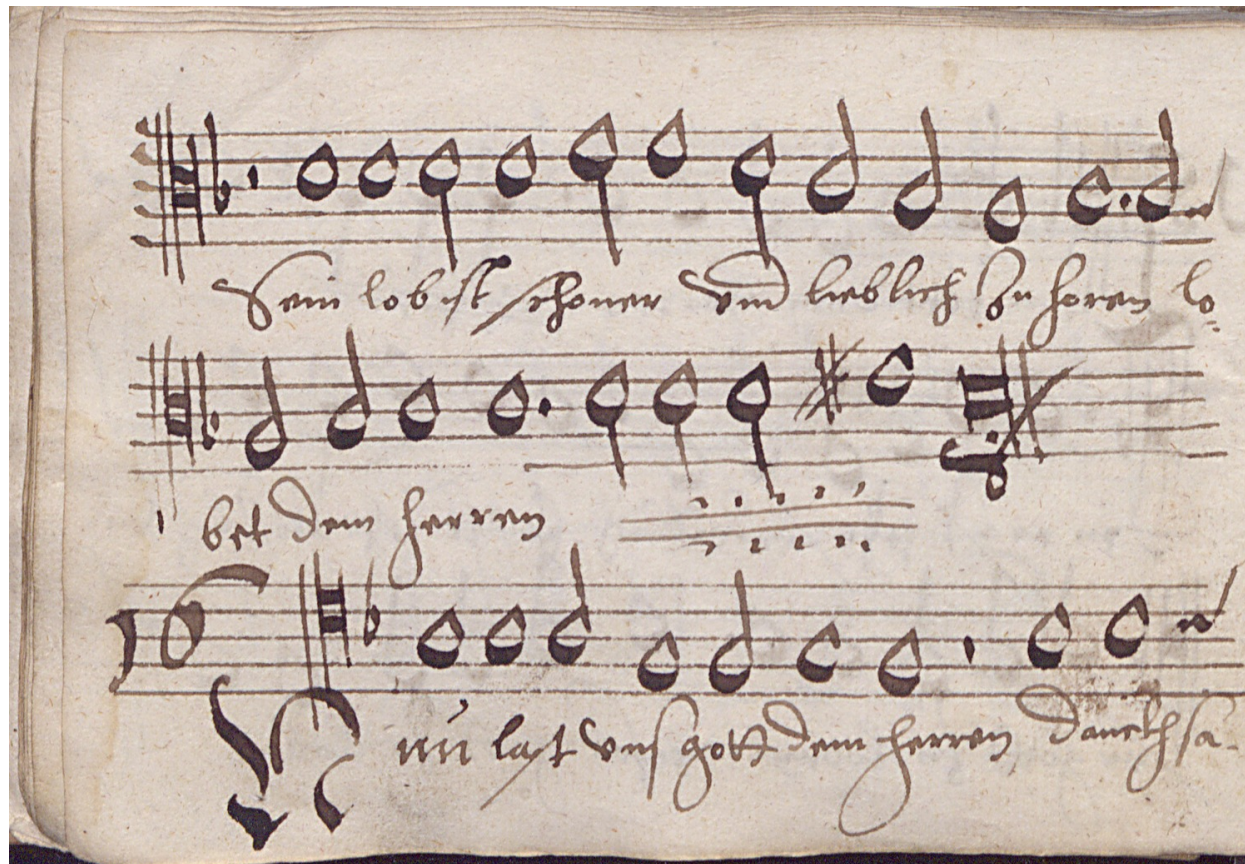 Sein lob ist schoner vnd lieblich zu horen lo=
bet dem herren
Nun last vns gott dem herren danckh sa-